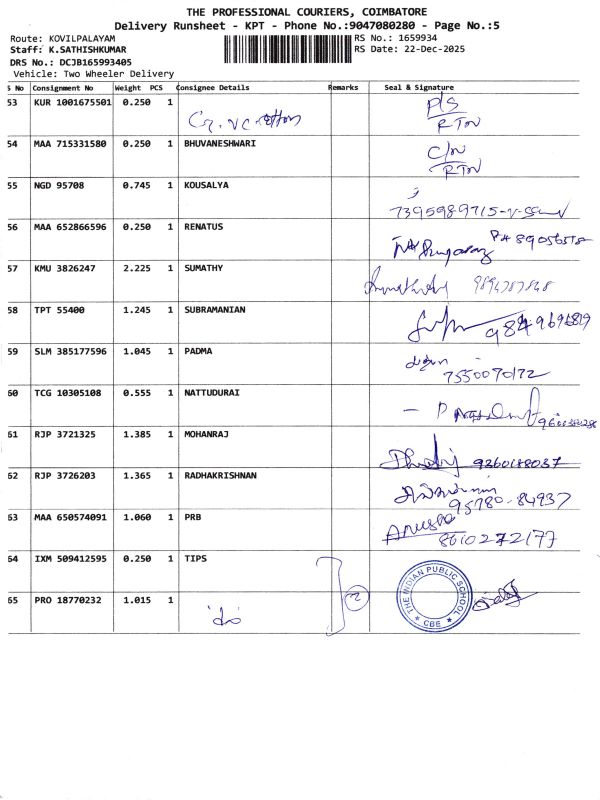 THE PROFESSIONAL COURIERS, COIMBATORE
Delivery Runsheet - KPT - Phone No.:9047080280 - Page No.:5
Route: KOVILPALAYAM RS No.: 1659934
Staff: K.SATHISHKUMAR RS Date: 22-Dec-2025
DRS No.: DCJB165993405
Vehicle: Two Wheeler Delivery
S No Consignment No Weight PCS Consignee Details Remarks Seal & Signature
53 KUR 1001675501 0.250 1 P/S
RTN
54 MAA 715331580 0.250 1 BHUVANESHWARI C/N
RTN
55 NGD 95708 0.745 1 KOUSALYA
7395989715
56 MAA 652866596 0.250 1 RENATUS
57 KMU 3826247 2.225 1 SUMATHY
58 TPT 55400 1.245 1 SUBRAMANIAN
59 SLM 385177596 1.045 1 PADMA
7550070172
60 TCG 10305108 0.555 1 NATTUDURAI
61 RJP 3721325 1.385 1 MOHANRAJ
62 RJP 3726203 1.365 1 RADHAKRISHNAN
95780-84937
63 MAA 650574091 1.060 1 PRB Anusha
8610272177
64 IXM 509412595 0.250 1 TIPS
65 PRO 18770232 1.015 1 2
THE INDIAN PUBLIC SCHOOL
CBE